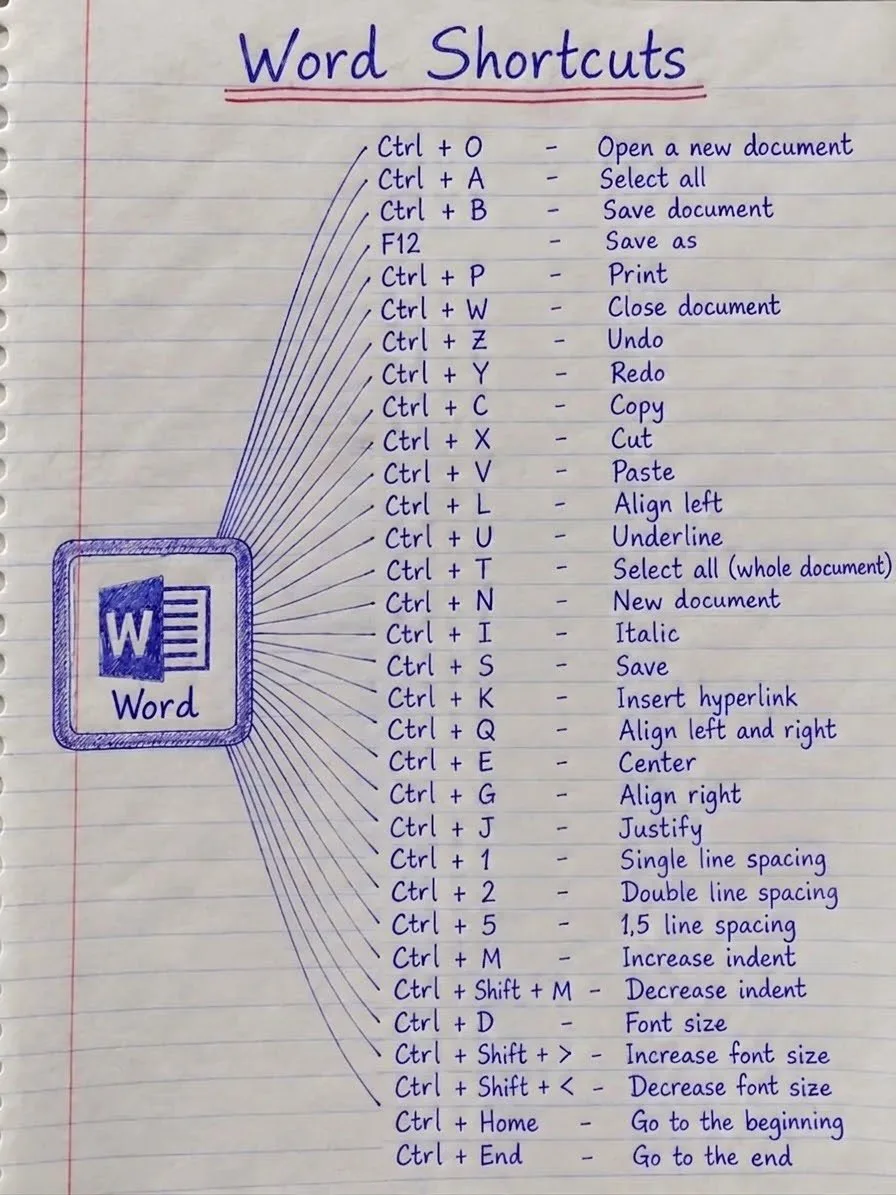 Word Shortcuts
Ctrl + O - Open a new document
Ctrl + A - Select all
Ctrl + B - Save document
F12 - Save as
Ctrl + P - Print
Ctrl + W - Close document
Ctrl + Z - Undo
Ctrl + Y - Redo
Ctrl + C - Copy
Ctrl + X - Cut
Ctrl + V - Paste
Ctrl + L - Align left
Ctrl + U - Underline
Ctrl + T - Select all (whole document)
Ctrl + N - New document
Ctrl + I - Italic
Ctrl + S - Save
Ctrl + K - Insert hyperlink
Ctrl + Q - Align left and right
Ctrl + E - Center
Ctrl + G - Align right
Ctrl + J - Justify
Ctrl + 1 - Single line spacing
Ctrl + 2 - Double line spacing
Ctrl + 5 - 1,5 line spacing
Ctrl + M - Increase indent
Ctrl + Shift + M - Decrease indent
Ctrl + D - Font size
Ctrl + Shift + > - Increase font size
Ctrl + Shift + < - Decrease font size
Ctrl + Home - Go to the beginning
Ctrl + End - Go to the end
W
Word